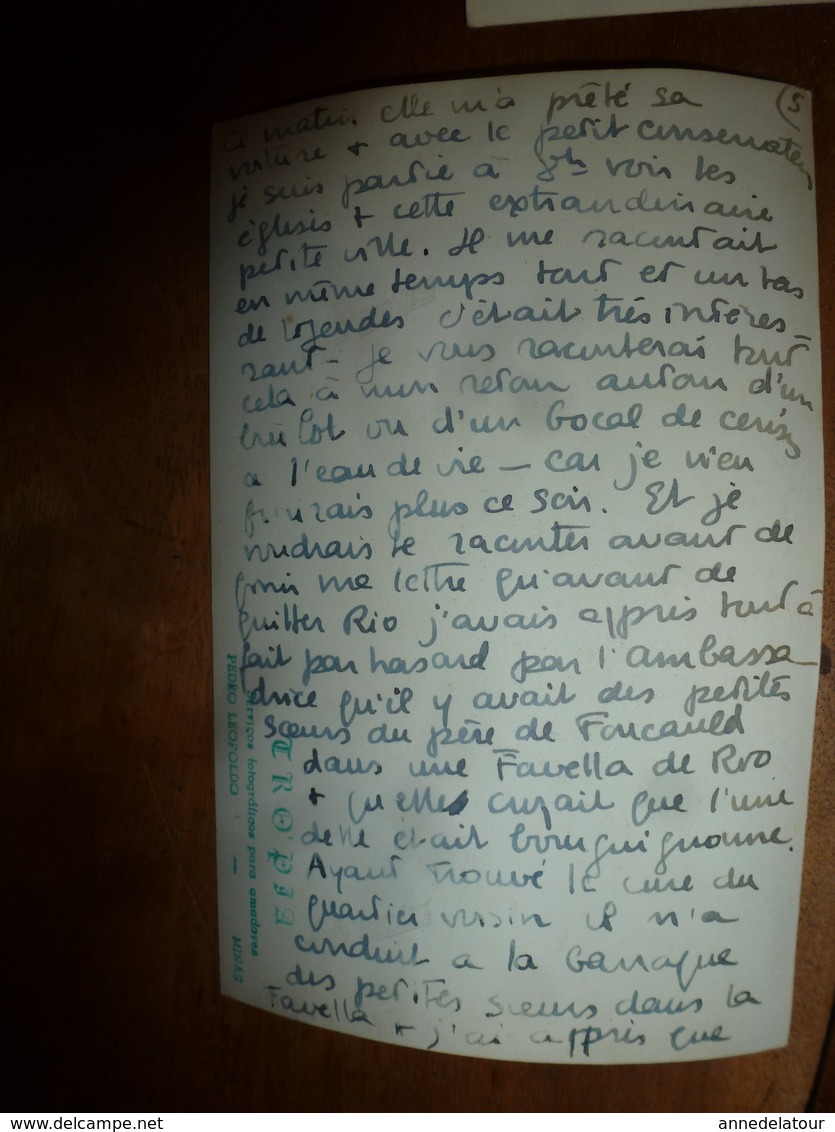 (5
Ce matin elle m'a prêté sa
voiture + avec le petit conservateur
je suis partie à 8h voir les
églises + cette extraordinaire
petite ville. Il me racontait
en même temps tout et un tas
de légendes c'était très intéres-
sant - je vous raconterai tout
cela à mon retour autour d'un
brûlot ou d'un bocal de cerises
a l'eau de vie - car je n'en
finirais plus ce soir. Et je
voudrais te raconter avant de
finir ma lettre qu'avant de
quitter Rio j'avais appris tout à
fait par hasard par l'ambassa-
drice qu'il y avait des petites
Sœurs du père de Foucauld
dans une Favella de Rio
+ qu'elle croyait que l'une
d'elle était bourguignonne.
Ayant trouvé le curé du
quartier voisin il m'a
conduit a la baraque
des petites sœurs dans la
Favella + j'ai appris que
TROPIA
Serviços fotográficos para amadores
PEDRO LEOPOLDO — MINAS
www.delcampe.net
annedelatour